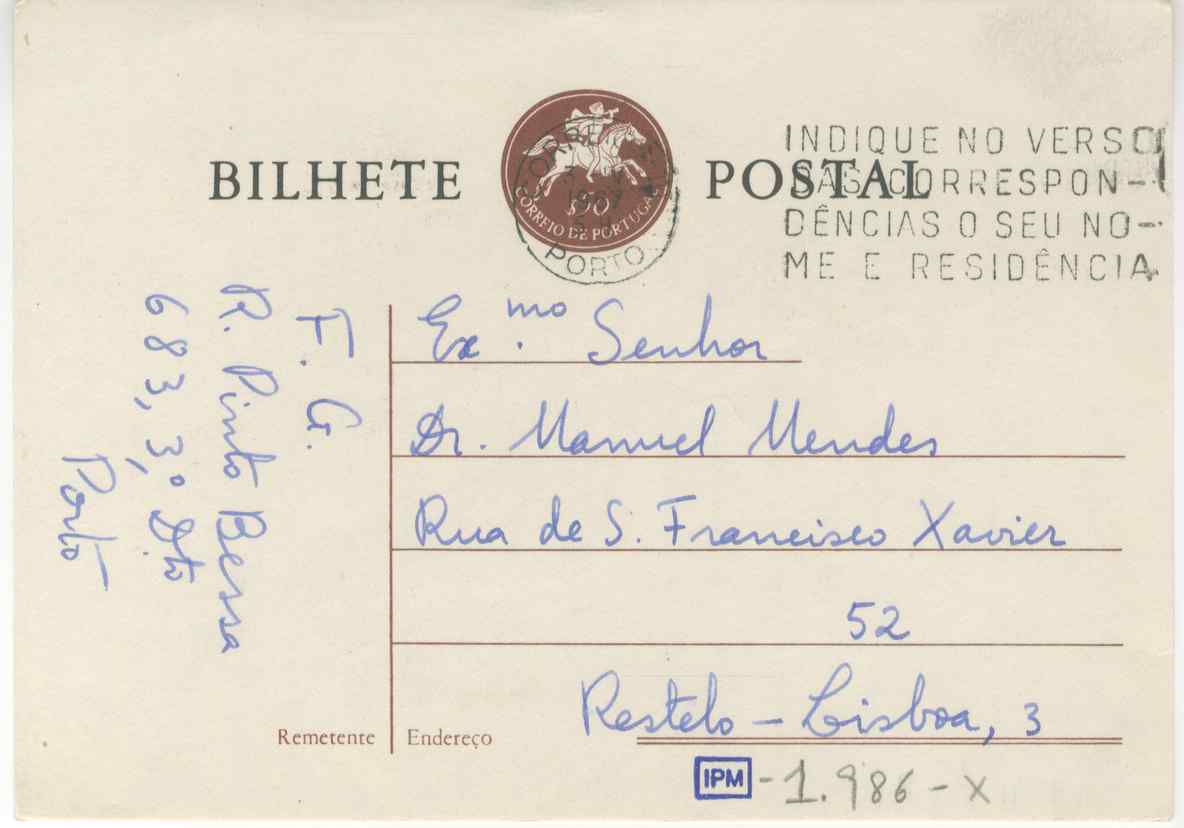 BILHETE POSTAL
$90
CORREIO DE PORTUGAL
PORTO
INDIQUE NO VERSO
DAS CORRESPON-
DÊNCIAS O SEU NO-
ME E RESIDÊNCIA
F. G.
R. Pinto Bessa
683, 3.º D.to
Porto
Ex.mo Senhor
Dr. Manuel Mendes
Rua de S. Francisco Xavier
52
Restelo - Lisboa, 3
Remetente
Endereço
IPM - 1.986 - X